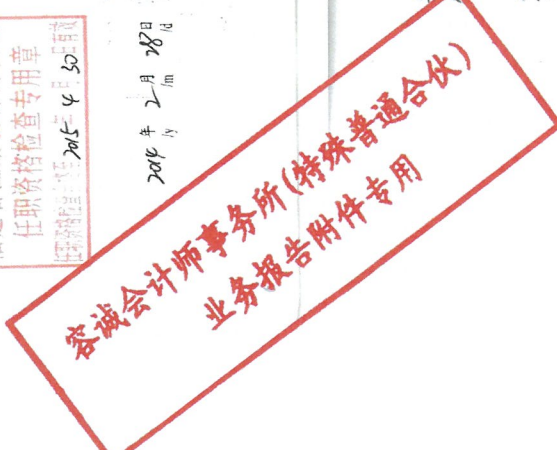 任职资格检查专用章
2015 4 30
日有效
2014 年 2 月 28 日
/y /m /d
容诚会计师事务所(特殊普通合伙)
业务报告附件专用